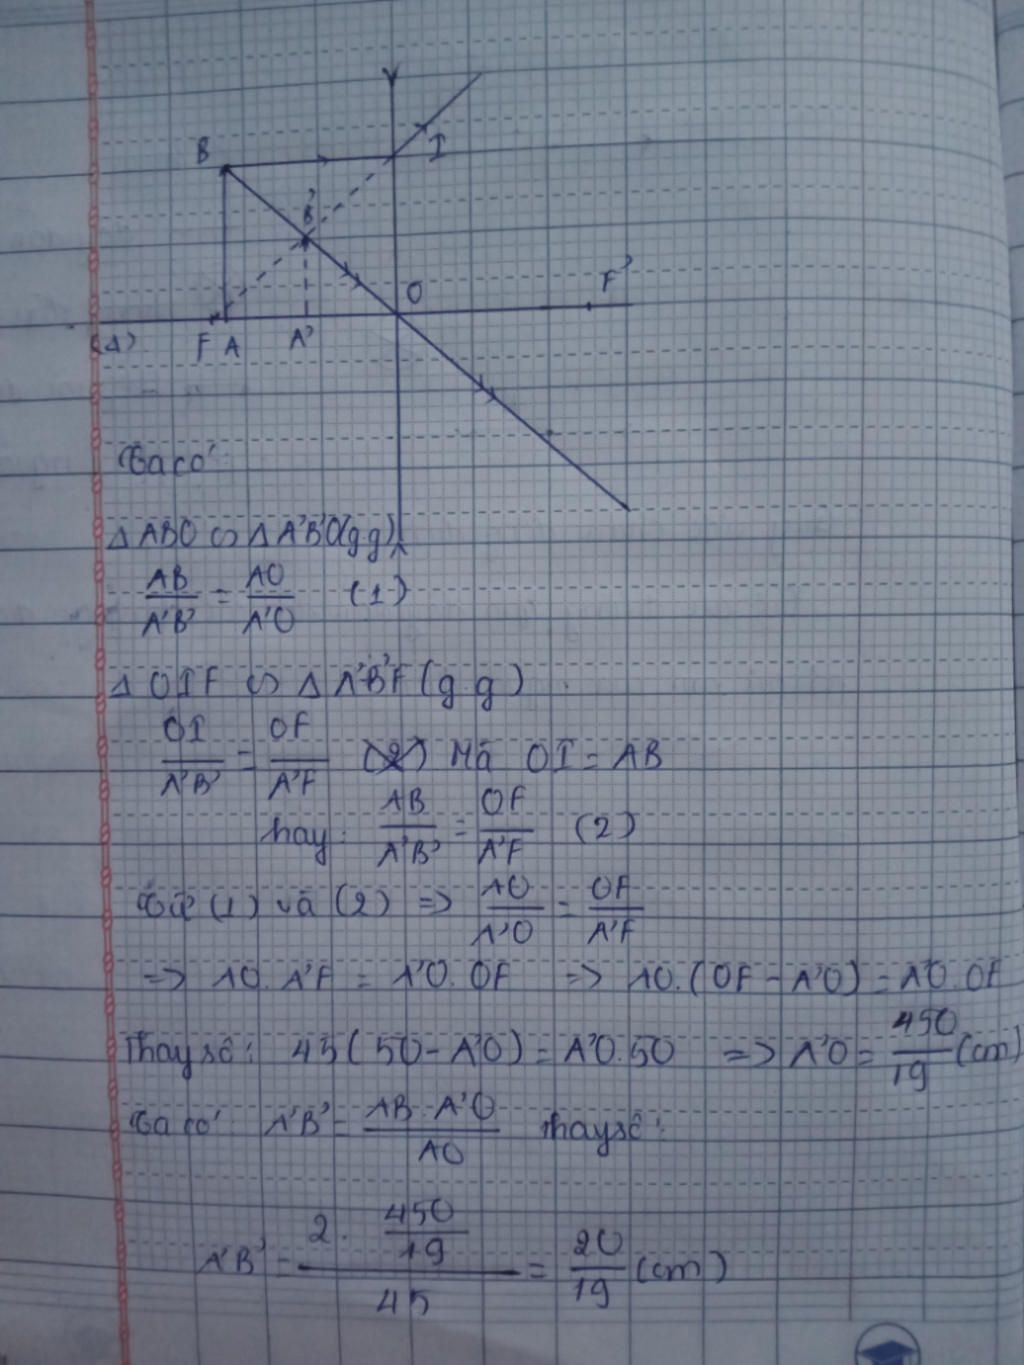 B
I
B'
O
F'
(Δ)
F A
A'
Ta có:
Δ ABO ∽ Δ A'B'O(g.g)
AB/A'B' = AO/A'O (1)
Δ OIF ∽ Δ A'B'F (g.g)
OI/A'B' = OF/A'F (2) Mà OI = AB
hay: AB/A'B' = OF/A'F (2)
Từ (1) và (2) => AO/A'O = OF/A'F
=> AO. A'F = A'O. OF => AO.(OF - A'O) = A'O. OF
Thay số: 45(50 - A'O) = A'O.50 => A'O = 450/19 (cm)
Ta có: A'B' = AB. A'O/AO Thay số:
A'B' = (2. 450/19)/45 = 20/19 (cm)